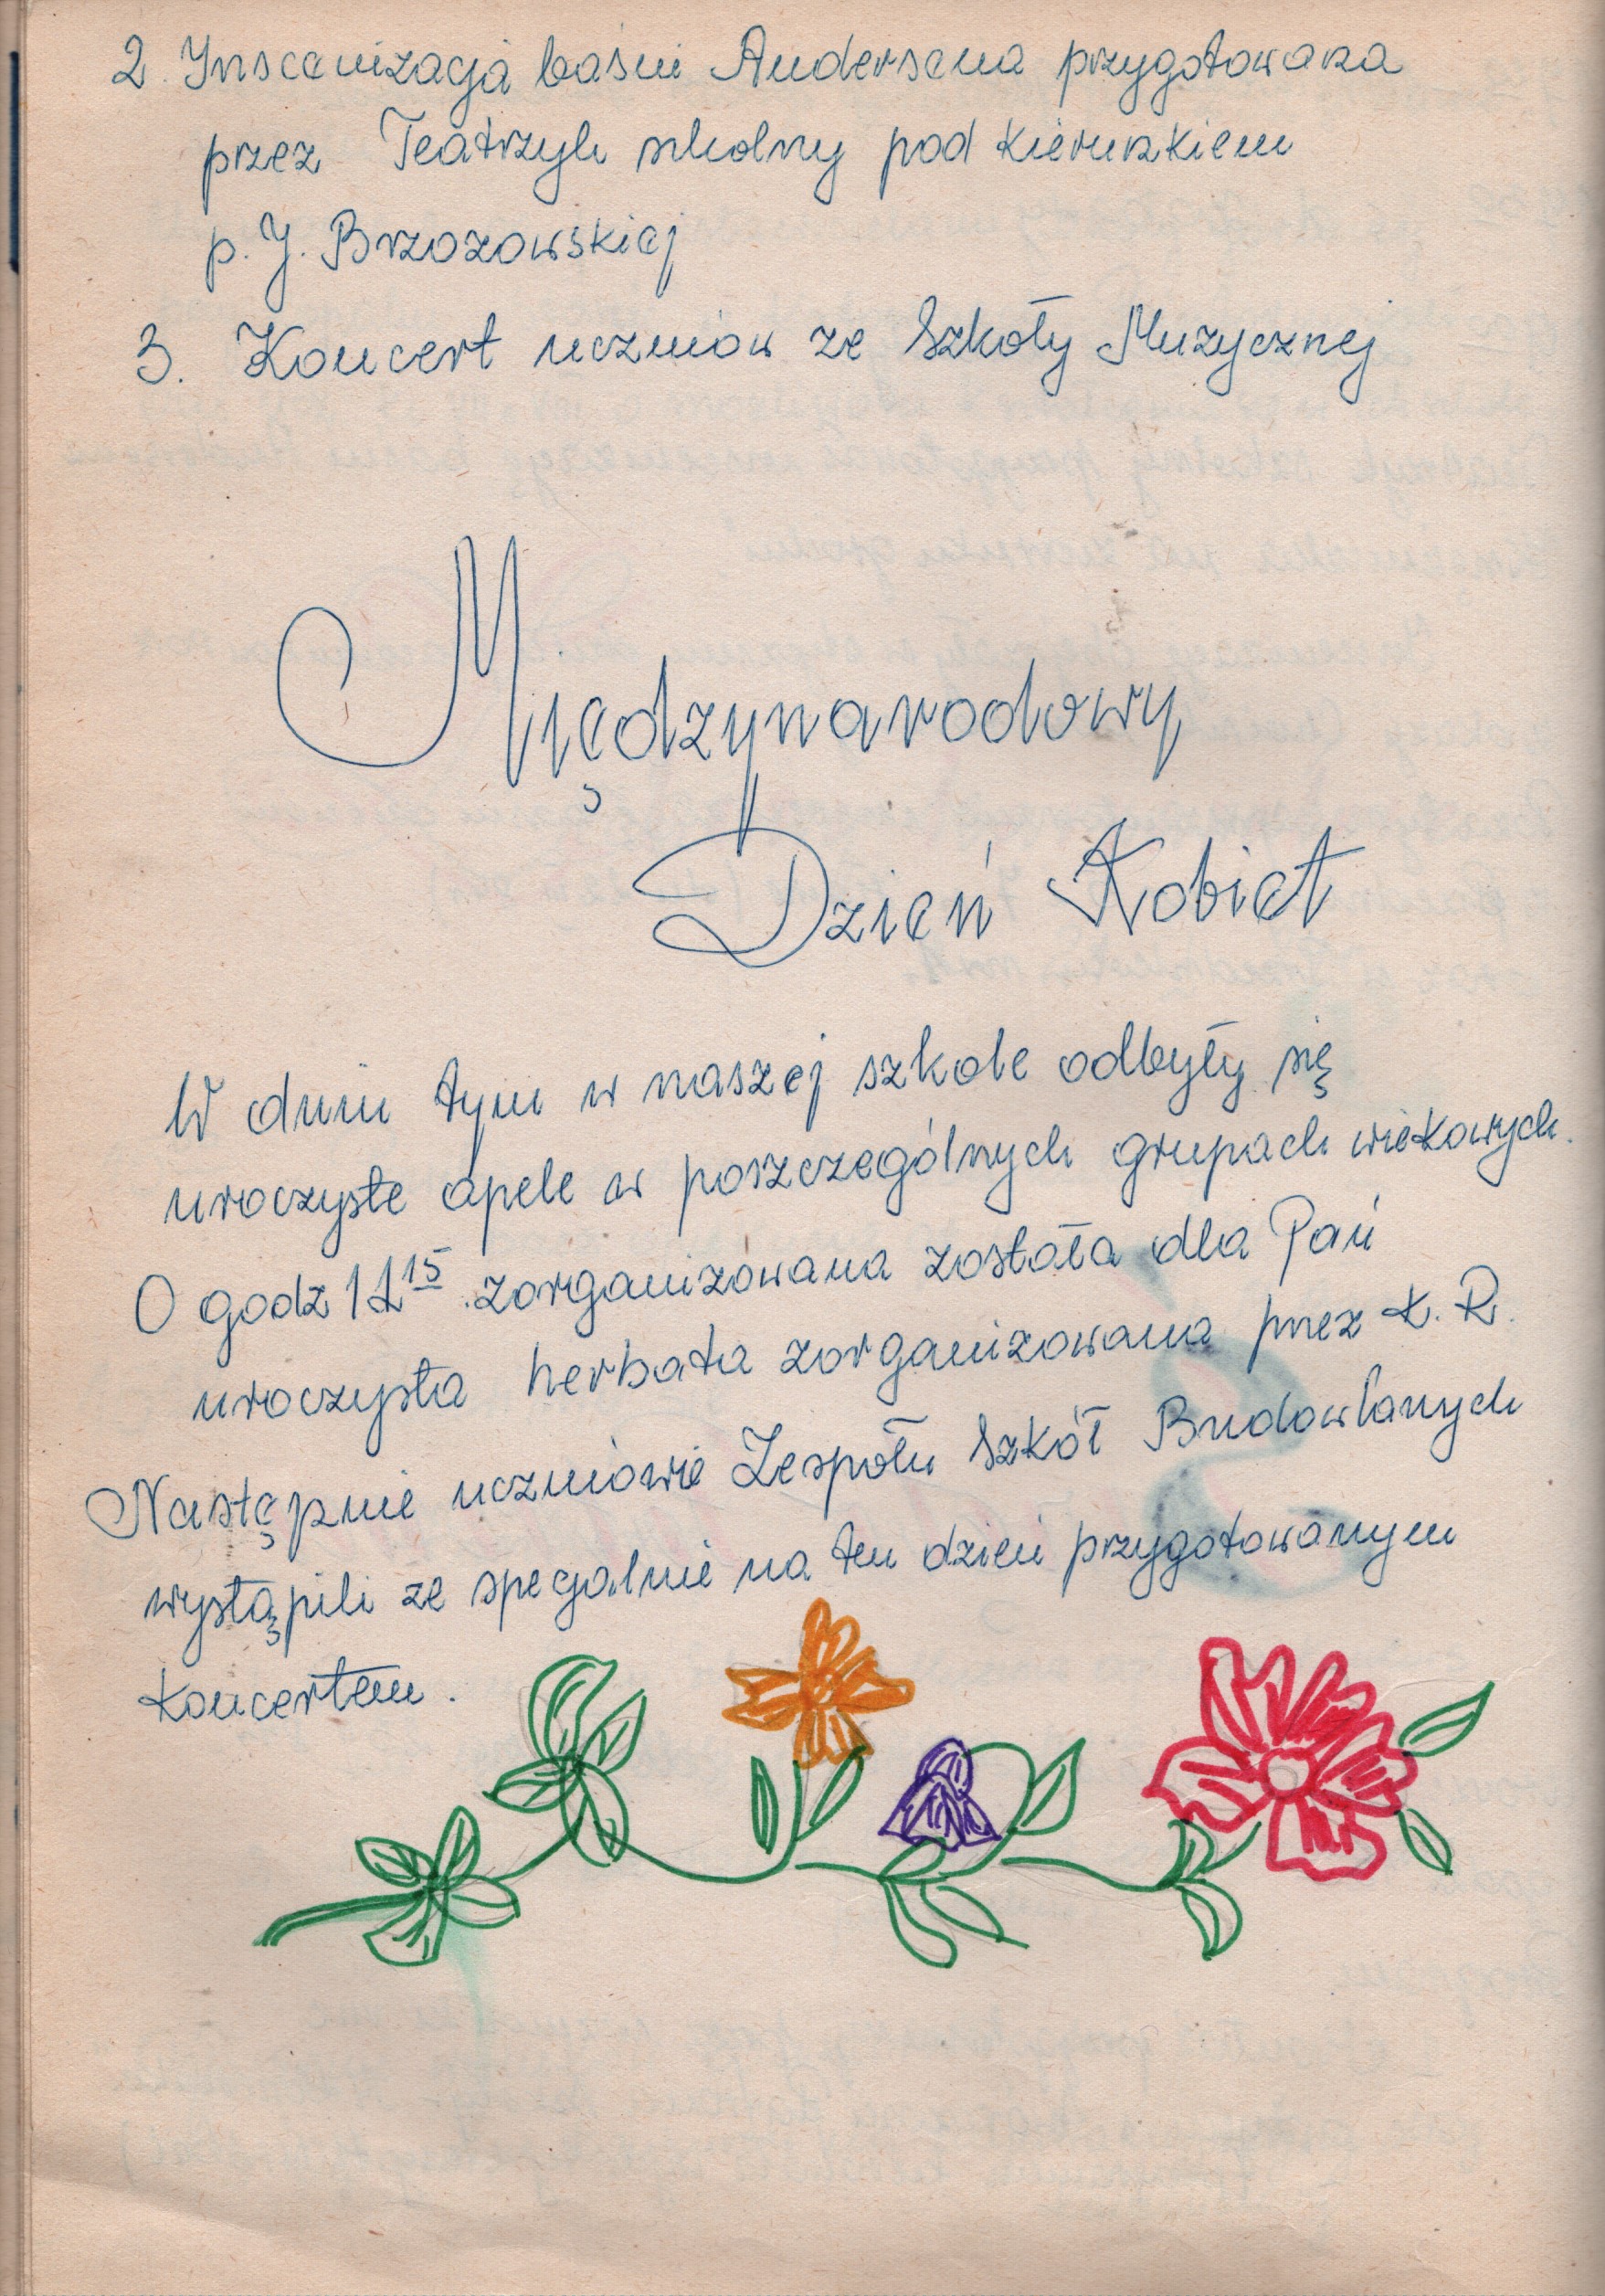 2. Inscenizacja baśni Andersena przygotowana
przez Teatrzyk szkolny pod kierunkiem
p. J. Brzozowskiej
3. Koncert uczniów ze Szkoły Muzycznej
Międzynarodowy
Dzień Kobiet
W dniu tym w naszej szkole odbyły się
uroczyste apele w poszczególnych grupach wiekowych.
O godz 11¹⁵ zorganizowana została dla Pań
uroczysta herbata zorganizowana przez K.R.
Następnie uczniowie Zespołu Szkół Budowlanych
wystąpili ze specjalnie na ten dzień przygotowanym
koncertem.